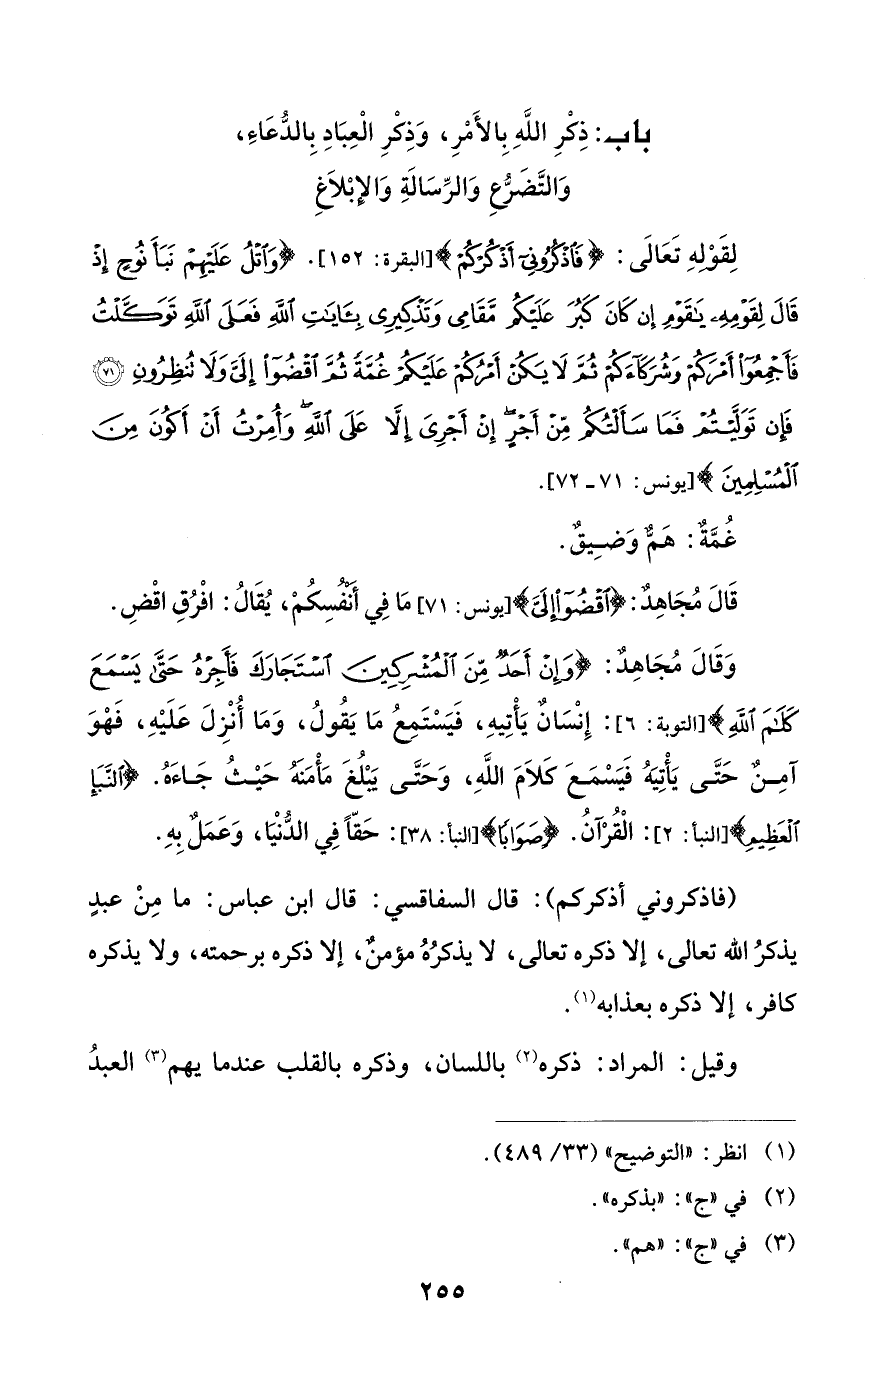 باب: ذِكْرِ اللَّهِ بِالأَمْرِ، وَذِكْرِ الْعِبَادِ بِالدُّعَاءِ،
وَالتَّضَرُّعِ وَالرِّسَالَةِ وَالإِبْلاَغِ
لِقَوْلِهِ تَعَالَى: ﴿فَٱذۡكُرُونِيٓ أَذۡكُرۡكُمۡ﴾[البقرة: ١٥٢]. ﴿وَٱتۡلُ عَلَيۡهِمۡ نَبَأَ نُوحٍ إِذۡ
قَالَ لِقَوۡمِهِۦ يَٰقَوۡمِ إِن كَانَ كَبُرَ عَلَيۡكُم مَّقَامِى وَتَذۡكِيرِى بِـَٔايَٰتِ ٱللَّهِ فَعَلَى ٱللَّهِ تَوَكَّلۡتُ
فَأَجۡمِعُوٓاْ أَمۡرَكُمۡ وَشُرَكَآءَكُمۡ ثُمَّ لَا يَكُنۡ أَمۡرُكُمۡ عَلَيۡكُمۡ غُمَّةً ثُمَّ ٱقۡضُوٓاْ إِلَىَّ وَلَا تُنظِرُونِ ٧١
فَإِن تَوَلَّيۡتُمۡ فَمَا سَأَلۡتُكُم مِّنۡ أَجۡرٍۖ إِنۡ أَجۡرِىَ إِلَّا عَلَى ٱللَّهِۖ وَأُمِرۡتُ أَنۡ أَكُونَ مِنَ
ٱلۡمُسۡلِمِينَ﴾[يونس: ٧١ ـ ٧٢].
غُمَّةٌ: هَمٌّ وَضِيقٌ.
قَالَ مُجَاهِدٌ: ﴿ٱقۡضُوٓاْ إِلَىَّ﴾[يونس: ٧١] مَا فِي أَنْفُسِكُمْ، يُقَالُ: افْرُقِ اقْضِ.
وَقَالَ مُجَاهِدٌ: ﴿وَإِنۡ أَحَدٌ مِّنَ ٱلۡمُشۡرِكِينَ ٱسۡتَجَارَكَ فَأَجِرۡهُ حَتَّىٰ يَسۡمَعَ
كَلَٰمَ ٱللَّهِ﴾[التوبة: ٦]: إِنْسَانٌ يَأْتِيهِ، فَيَسْتَمِعُ مَا يَقُولُ، وَمَا أُنْزِلَ عَلَيْهِ، فَهْوَ
آمِنٌ حَتَّى يَأْتِيَهُ فَيَسْمَعَ كَلاَمَ اللَّهِ، وَحَتَّى يَبْلُغَ مَأْمَنَهُ حَيْثُ جَاءَهُ. ﴿ٱلنَّبَإِ
ٱلۡعَظِيمِ﴾[النبأ: ٢]: الْقُرْآنُ. ﴿صَوَابًا﴾[النبأ: ٣٨]: حَقّاً فِي الدُّنْيَا، وَعَمَلٌ بِهِ.
(فاذكروني أذكركم): قال السفاقسي: قال ابن عباس: ما مِنْ عبدٍ
يذكرُ الله تعالى، إلا ذكره تعالى، لا يذكرُهُ مؤمنٌ، إلا ذكره برحمته، ولا يذكره
كافر، إلا ذكره بعذابه(١).
وقيل: المراد: ذكره(٢) باللسان، وذكره بالقلب عندما يهم(٣) العبدُ
(١) انظر: «التوضيح» (٣٣/ ٤٨٩).
(٢) في «ج»: «بذكره».
(٣) في «ج»: «هم».
٢٥٥